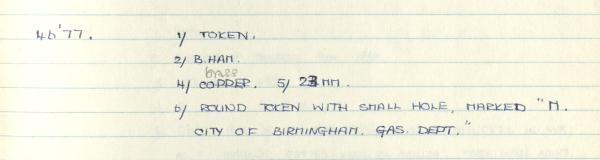 46'77.
1/ TOKEN.
2/ B.HAM.
brass
4/ COPPER. 5/ 23 MM.
6/ ROUND TOKEN WITH SMALL HOLE, MARKED "M.
CITY OF BIRMINGHAM. GAS. DEPT."